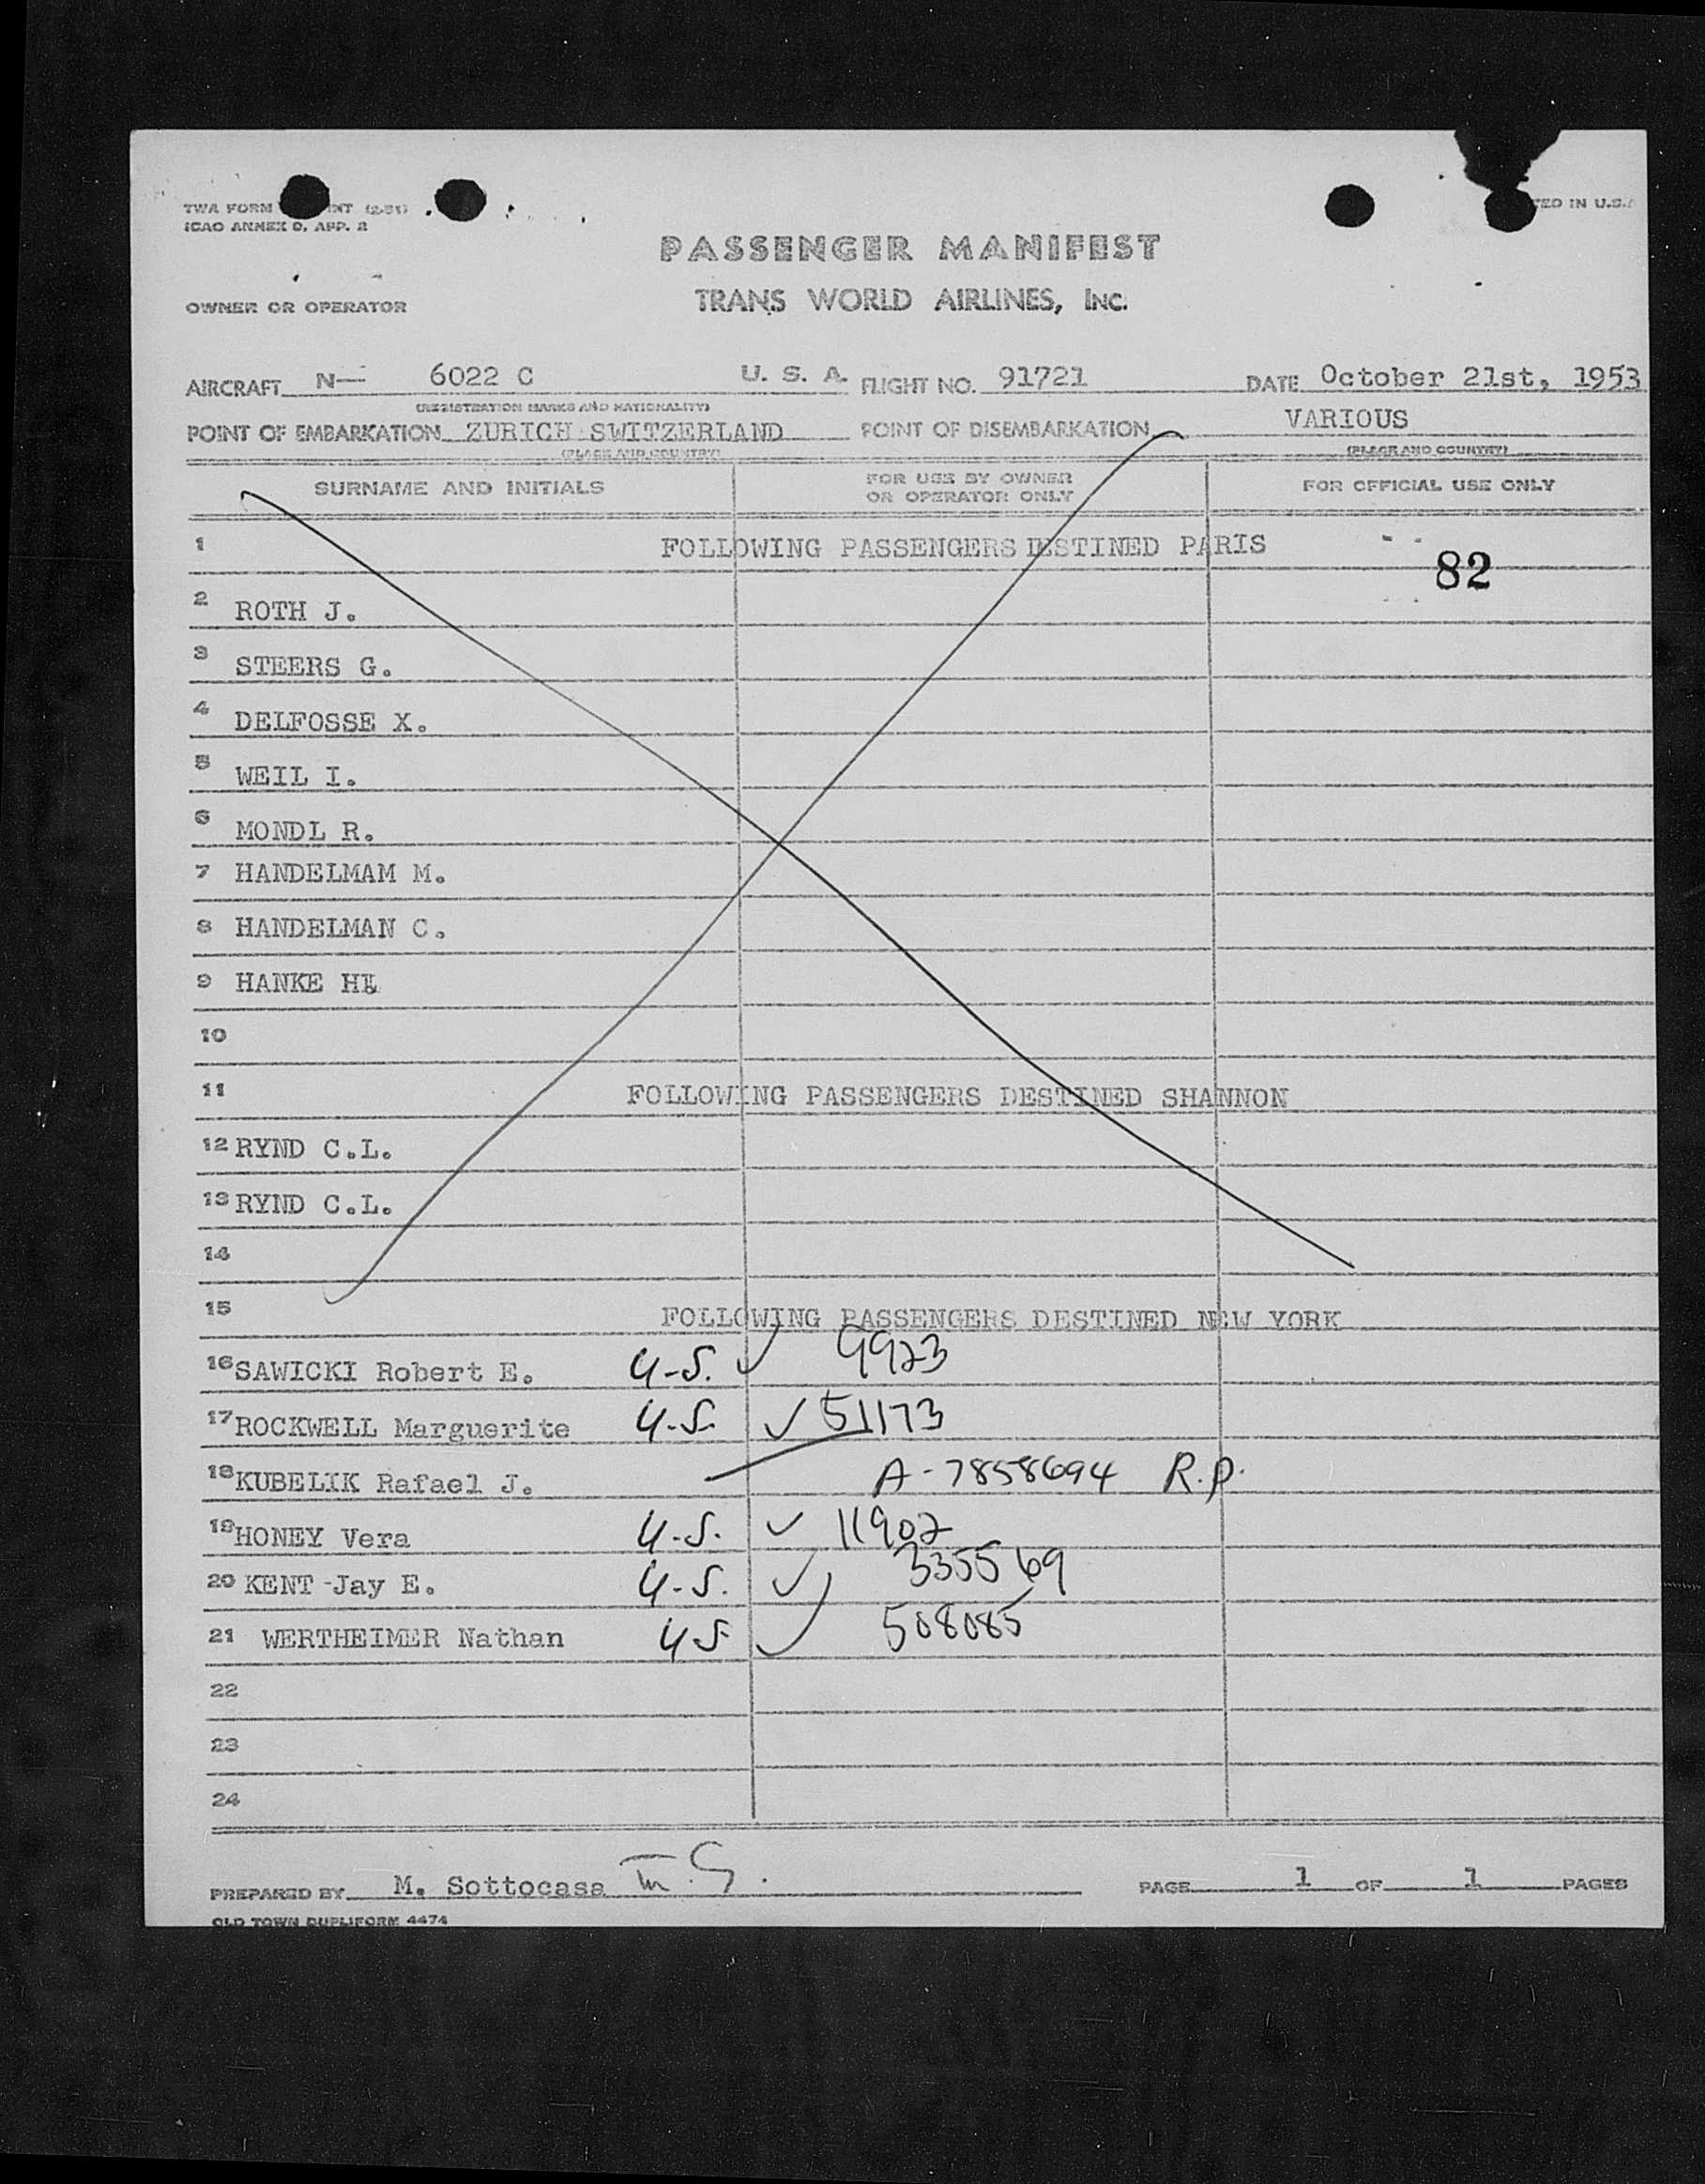 TWA FORM INT (2-51)
ICAO ANNEX 9, APP. 2
TED IN U.S.
PASSENGER MANIFEST
OWNER OR OPERATOR
TRANS WORLD AIRLINES, INC.
AIRCRAFT N— 6022 C U. S. A. FLIGHT NO. 91721 DATE October 21st, 1953
(REGISTRATION MARKS AND NATIONALITY)
POINT OF EMBARKATION ZURICH SWITZERLAND POINT OF DISEMBARKATION VARIOUS
(PLACE AND COUNTRY) (PLACE AND COUNTRY)
SURNAME AND INITIALS FOR USE BY OWNER OR OPERATOR ONLY FOR OFFICIAL USE ONLY
1 FOLLOWING PASSENGERS DESTINED PARIS
82
2 ROTH J.
3 STEERS G.
4 DELFOSSE X.
5 WEIL I.
6 MONDL R.
7 HANDELMAM M.
8 HANDELMAN C.
9 HANKE
10
11 FOLLOWING PASSENGERS DESTINED SHANNON
12 RYND C.L.
13 RYND C.L.
14
15 FOLLOWING PASSENGERS DESTINED NEW YORK
16 SAWICKI Robert E. U-S. ✓ 9923
17 ROCKWELL Marguerite U-S. ✓ 51173
18 KUBELIK Rafael J. A-7858694 R.P.
19 HONEY Vera U-S. ✓ 11902
20 KENT Jay E. U-S. ✓ 335569
21 WERTHEIMER Nathan U S ✓ 508085
22
23
24
PREPARED BY M. Sottocasa PAGE 1 OF 1 PAGES
OLD TOWN DUPLIFORM 4474